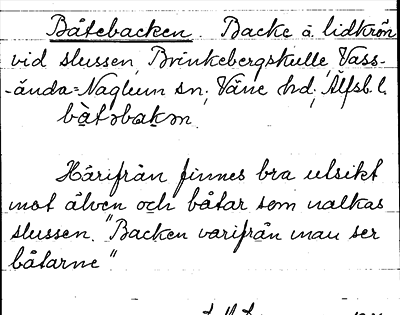 Båtebacken. Backe å lidkrön
vid slussen, Brinkebergskulle, Vass-
-ända=Naglum sn; Väne hd; Älfsb. l.
bà̀təbakən.
Härifrån finnes bra utsikt
mot älven och båtar som nalkas
slussen. "Backen varifrån man ser
båtarne"